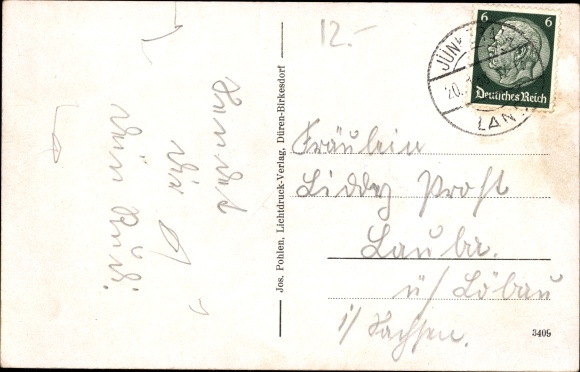 12.-
6 6
Deutsches Reich
JÜN
20.
LAN
Jos. Pohlen, Lichtdruck-Verlag, Düren-Birkesdorf
dein Rudi.
Fräulein
Liddy Proft
Lauba.
ü/ Löbau
i/ Sachsen.
3409